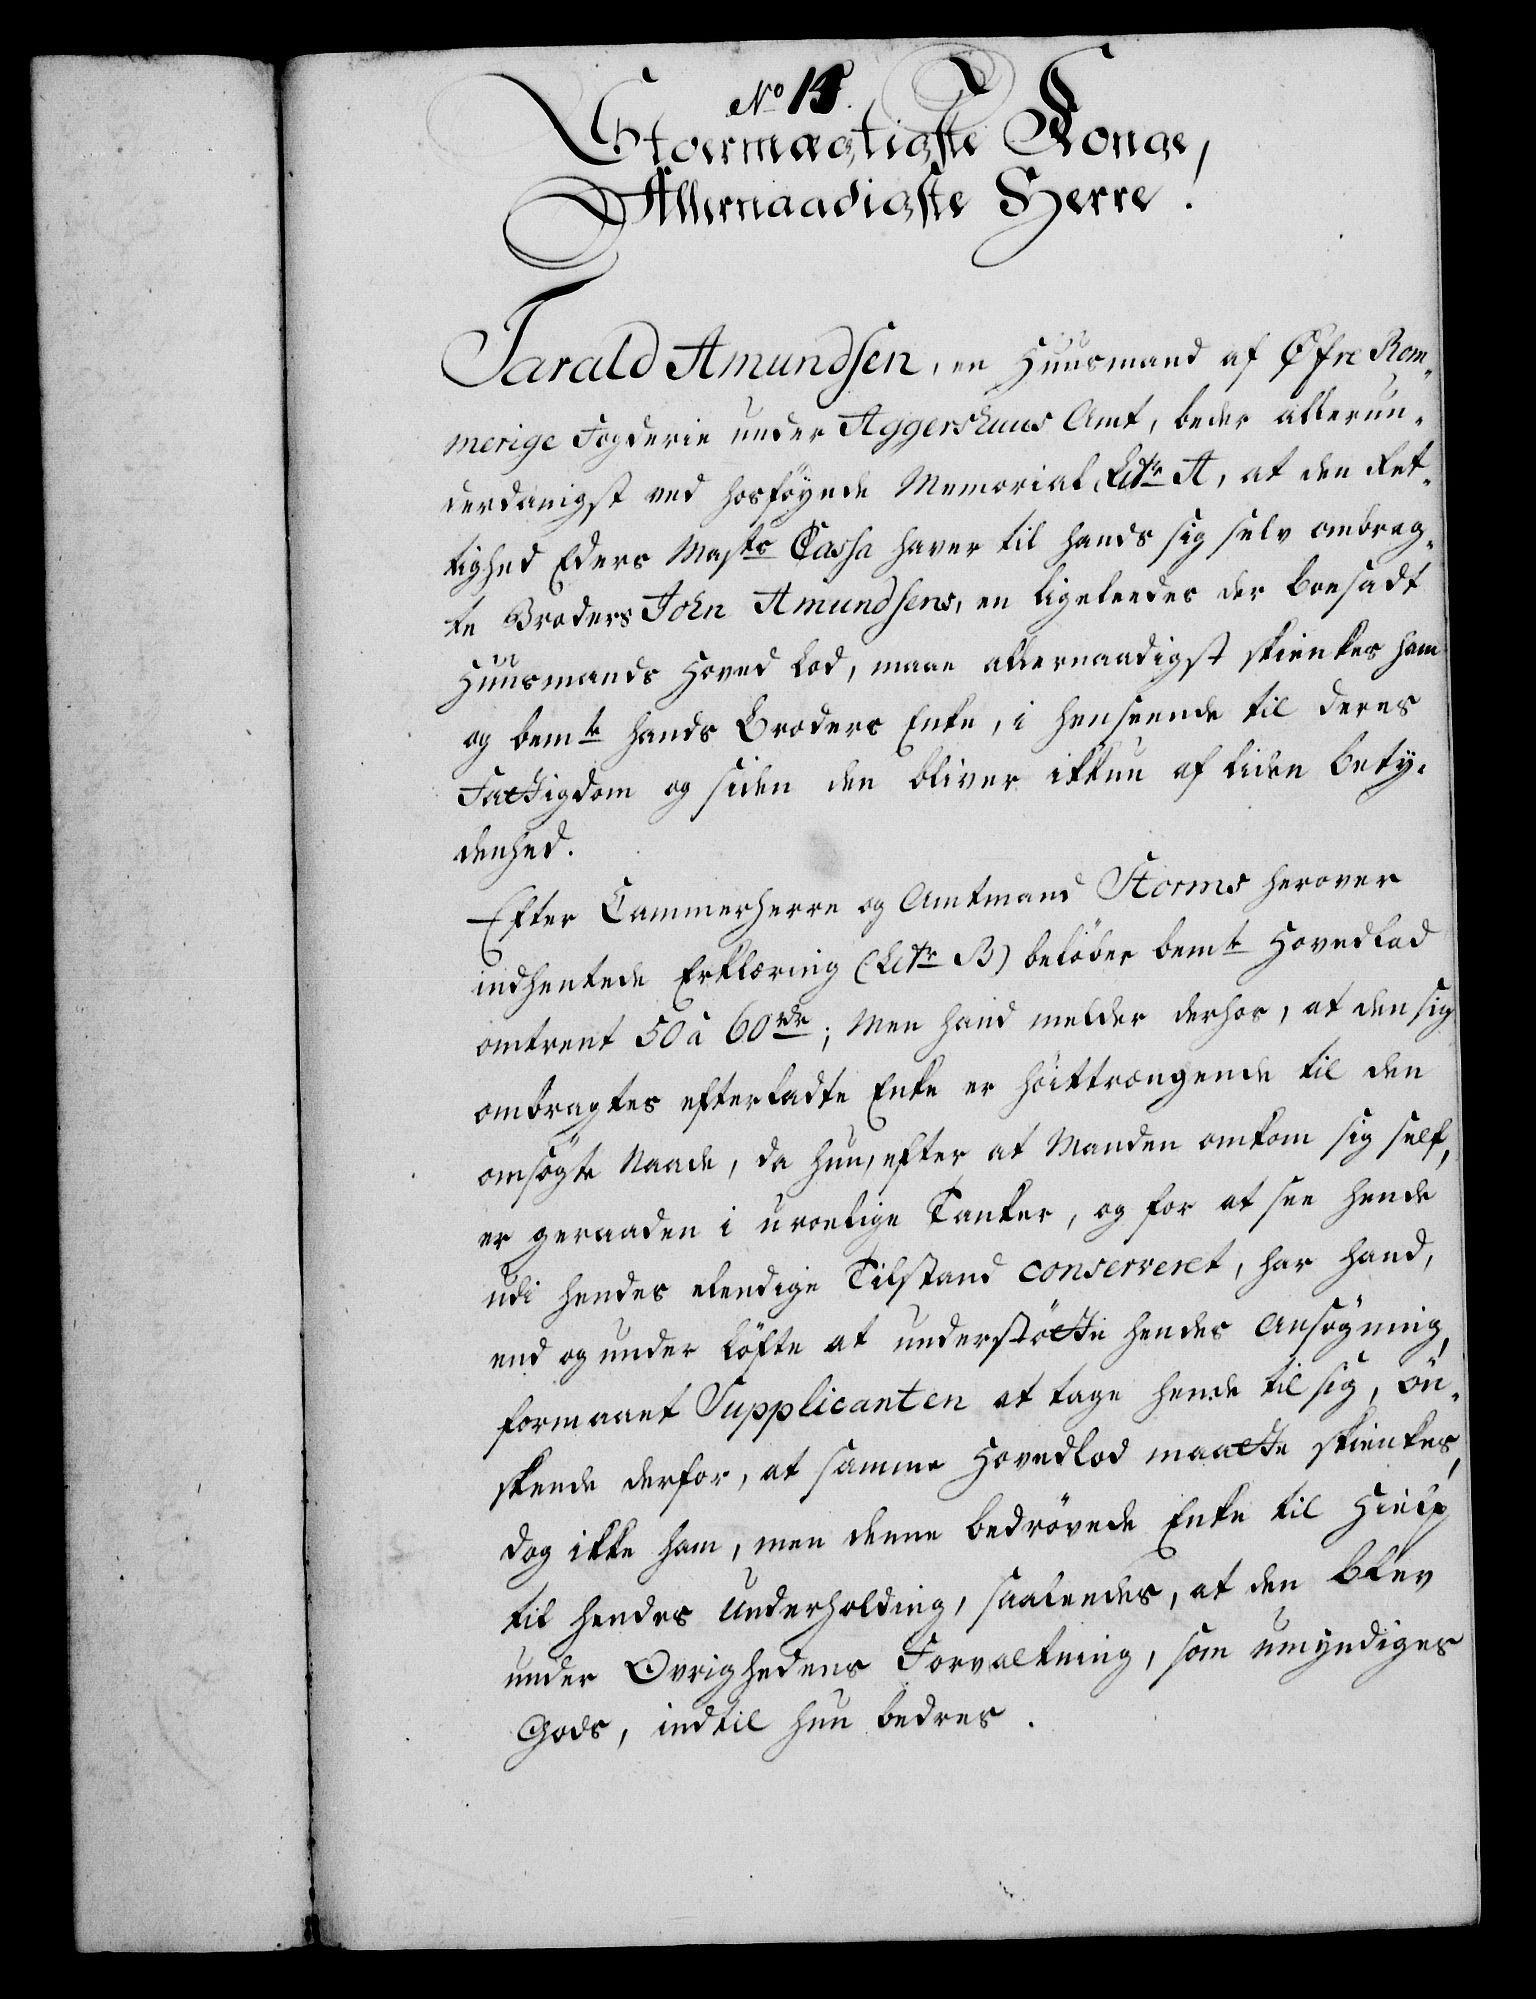 No 15.
Stormægtigste Konge,
Allernaadigste Herre!
Tarald Amundsen, en Huusmand af Øfre Rom-
merige Fogderie under Aggershuus Amt, beder allerun-
derdanigst ved hosföyede Memorial Litr A, at den Ret-
tighed Eders Maysts Cassa haver til hands sig selv ombrag-
te Broders John Amundsens, en ligeleedes der boesadt
Huusmands Hoved Lod, maae allernaadigst skienkes ham
og bemte hands Broders Enke, i henseende til deres
Fattigdom og siden den bliver ikkun af liden bety-
denhed.
Efter Cammerherre og Amtmand Storms herover
indhentede Erklæring (Litr B) belöber bemte Hovedlod
omtrent 50 à 60 rdr; Men hand melder derhos, at den sig
ombragtes efterladte Enke er höittrængende til den
omsögte Naade, da hun, efter at Manden omkom sig self,
er geraaden i uroelige Tanker, og for at see hende
udi hendes elendige Tilstand conserveret, har hand,
end og under Löfte at understötte hendes Ansögning,
formaaet Supplicanten at tage hende til sig, ön-
skende derfor, at samme Hovedlod maatte skienkes,
dog ikke ham, men denne bedrövede Enke til Hielp
til hendes Underholding, saaleedes, at den blev
under Øvrighedens Forvaltning, som umyndiges
Gods, indtil hun bedres.